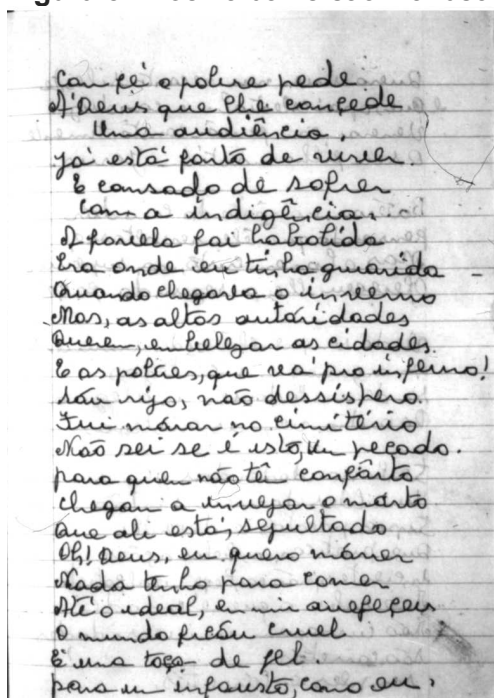 Com fé o pobre pede
A Deus que lhe conçede
Uma audiência.
Já está farto de viver.
E cansado de sofrer
Com a indigência.
A favela foi habolida
Era onde eu tinha guarida
Quando chegava o inverno
Mas, as altas autóridades
Querem, embelezar as cidades.
E os pobres, que vá pro inferno!
Sou rijo, não dessíspero.
Fui mórar no cimitério
Não sei se é isto, um peçado.
para quem não tê confôrto
chegam a invejar o morto
Que ali está, sepultado
Oh! Deus, eu quero mórrer
Nada tenho para comer
Até o ideal, em mim
O mundo ficóu cruel
É uma toça de fel.
para um infausto, como eu.